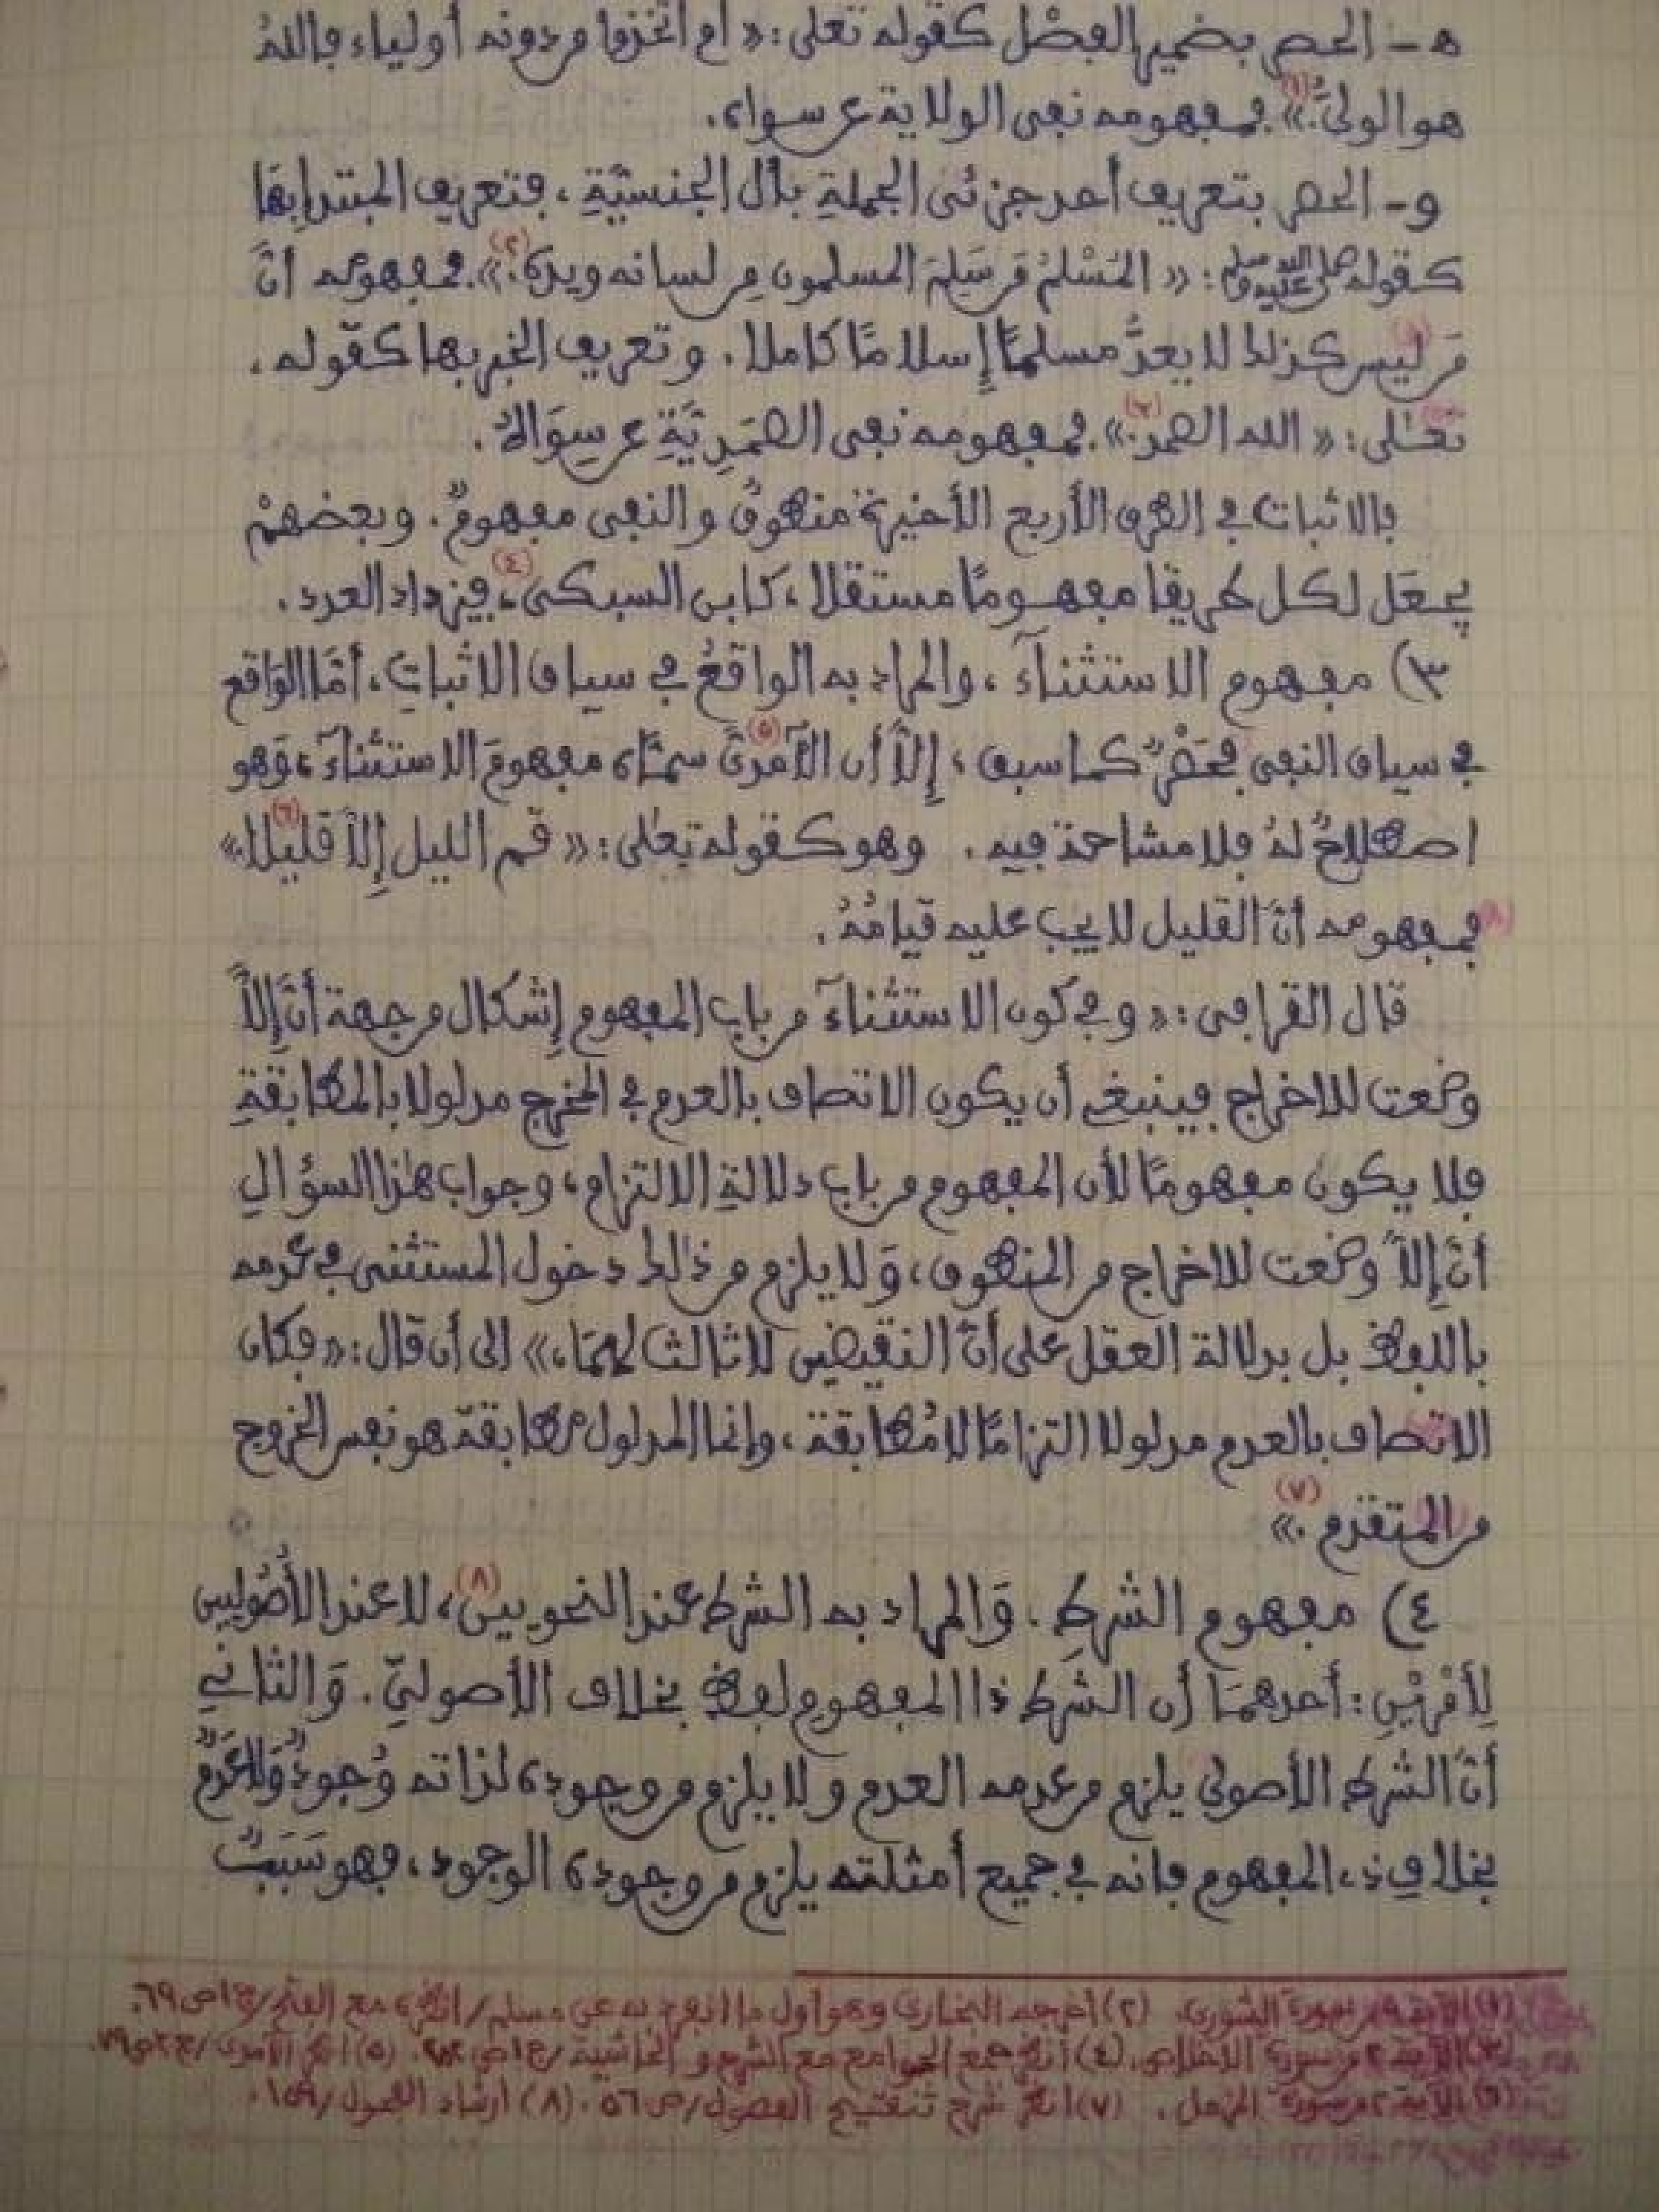 ه - الحصر بضمير الفصل كقوله تعلى: «أم اتخذوا من دونه أولياء فالله
هو الوليُّ(١).» فمفهومه نفي الولاية عن سواه.
و - الحصر بتعريف أحد جزئي الجملةِ بأل الجنسيّةِ، فتعريف المبتدإ بها
كقوله صلى الله عليه وسلم: «المُسْلمُ مَن سَلِمَ المسلمون مِن لسانه ويده(٢).» فمفهومه أنَّ
مَن ليس كذلك لا يعدُّ مسلمًا إسلامًا كاملا. وتعريف الخبر بها كقوله،
تعلى: «الله الصمد(٣).» فمفهومه نفي الصَّمَدِيَّةِ عن سِوَاهُ.
فالاثبات في الطرق الأربع الأخيرة منطوقٌ والنفي مفهومٌ. وبعضهمْ
يجعَل لكل طريقا مفهومًا مستقلا، كابن السبكي(٤)، فيزداد العدد.
٣) مفهوم الاستثناءَ، والمراد به الواقعُ في سياق الاثباتِ، أمَّا الوَاقع
في سياق النفي فحَصْرٌ كما سبق، إلاَّ أن الآمديَّ(٥) سمَّاه مفهومَ الاستثناءَ، وَهو
اصطلاحٌ لهُ فلا مشاحة فيه. وهو كقوله تعلى: «قم الليل إلاَّ قليلا(٦).»
فمفهومه أنَّ القليل لا يجب عليه قيامُهُ.
قال القرافي: «وفي كون الاستثناءَ من باب المفهوم إشكال من جهة أنَّ إلاَّ
وضعت للاخراج فينبغي أن يكون الاتصاف بالعدم في المخرج مدلولا بالمطابقةِ
فلا يكون مفهومًا لأن المفهوم من باب دلالةِ الالتزام، وجواب هذا السؤال
أنَّ إلاَّ وضعت للاخراج من المنطوق، وَلا يلزم من ذلك دخول المستثنى في عدمه
باللفظ بل بدلالة العقل على أنَّ النقيضين لا ثالث لهمَا،» إلى أن قال: «فكان
الاتصاف بالعدم مدلولا التزامًا لا مُطابقة، وإنما المدلول مطابقةً هو نفس الخروج
من المتقدم(٧).»
٤) مفهوم الشرطِ. وَالمراد به الشرط عند النحويين(٨)، لا عند الأُصُوليين
لِأمْرَيْنِ: أحدهمَا أن الشرط ذا المفهوم لفظ بخلاف الأصوليّ. وَالثاني
أنَّ الشرط الأصولي يلزم من عدمه العدم ولا يلزم من وجوده لذاته وُجودٌ وَلا عَدَمٌ
بخلاف ذي المفهوم فإنه في جميع أمثلته يلزم من وجوده الوجود، فهو سَبَبٌ
(١) الآية ٩ من سورة الشورى. (٢) أخرجه البخاري وهو أول ما انفرد به عن مسلم/انظره مع الفتح/ج١ص٦٩.
(٣) الآية ٢ من سورة الاخلاص. (٤) أنظر جمع الجوامع مع الشرح والحاشية/ج١ص (٥) انظر الآمدي/ج٢ص
(٦) الآية ٢ من سورة المزمل. (٧) انظر شرح تنقيح الفصول/ص٥٦. (٨) ارشاد الفحول/ص